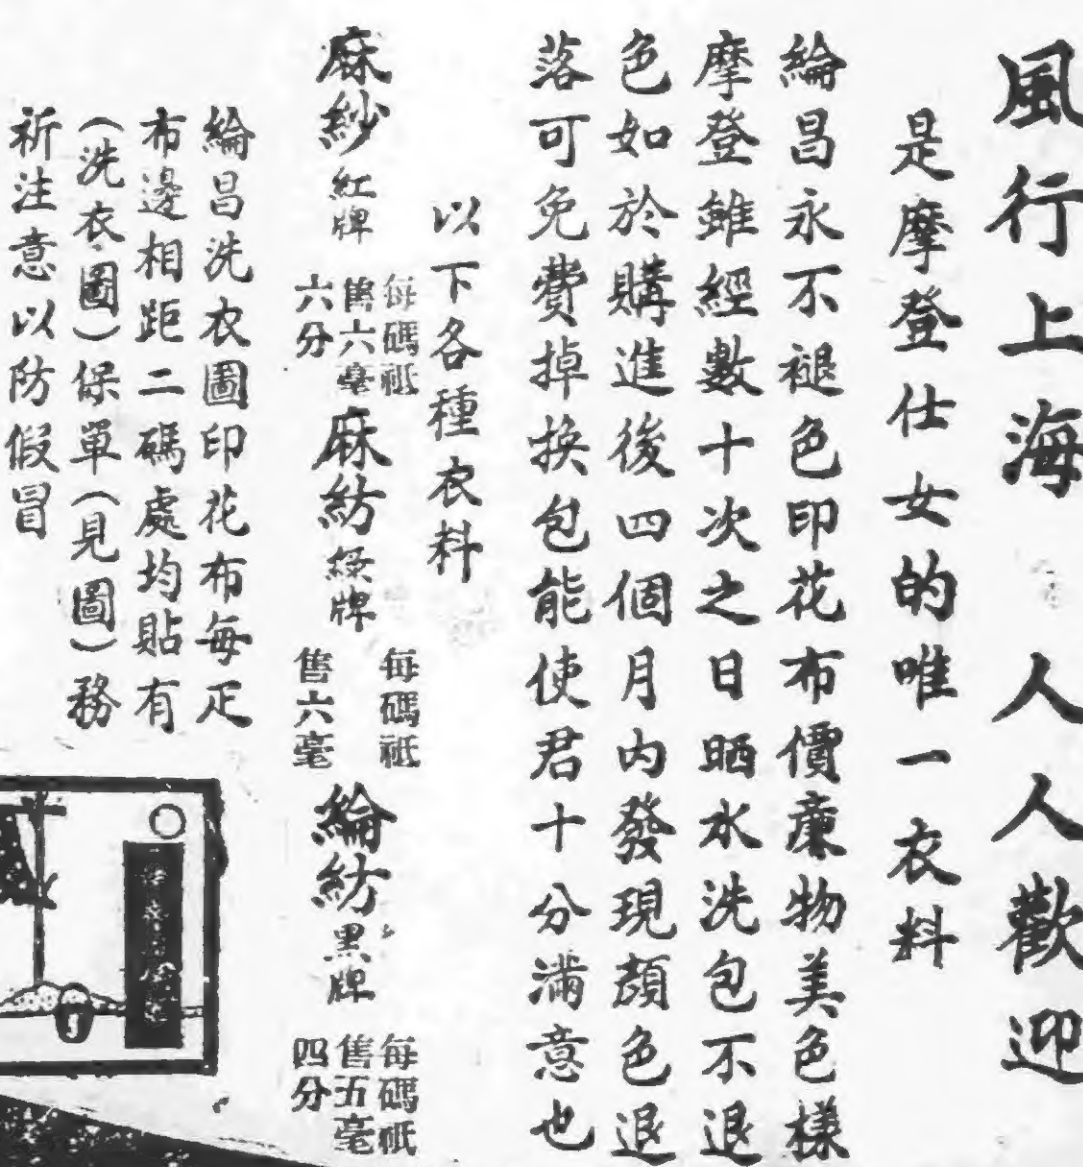 風行上海 人人歡迎
是摩登仕女的唯一衣料
綸昌永不褪色印花布價亷物美色樣
摩登雖經數十次之日晒水洗包不退
色如於購進後四個月内發現顏色退
落可免費掉换包能使君十分滿意也
以下各種衣料
麻紗紅牌 每碼祗售六毫六分
麻紡綠牌 每碼祗售六毫
綸紡黑牌 每碼祗售五毫四分
綸昌洗衣圖印花布每疋
布邊相距二碼處均貼有
(洗衣圖)保單(見圖)務
祈注意以防假冒